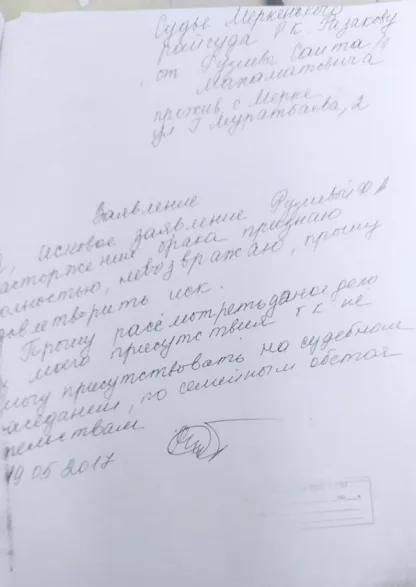 Судье Меркенского
райсуда РК Ризакову
от Рузиева Саита
Махаматовича
прожив с Мерке
ул Г Муратбаева, 2
Заявление
исковое заявление Рузиевой Ф А
расторжении брака признаю
полностью, невозвражаю, прошу
довлетворить иск.
Прошу рассмотреть даное дело
моего присутствия т к не
могу присутствовать на судебном
заседании, по семейным обстоя
тельствам
19 05 2017